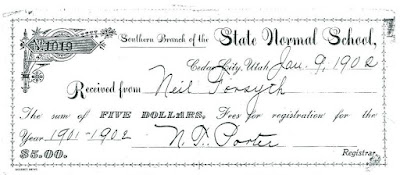 No. 1019
Southern Branch of the State Normal School,
Cedar City, Utah, Jan. 9, 1902
Received from Neil Forsyth
The sum of FIVE DOLLARS, Fees for registration for the
Year 1901-1902 N. T. Porter
$5.00. Registrar.